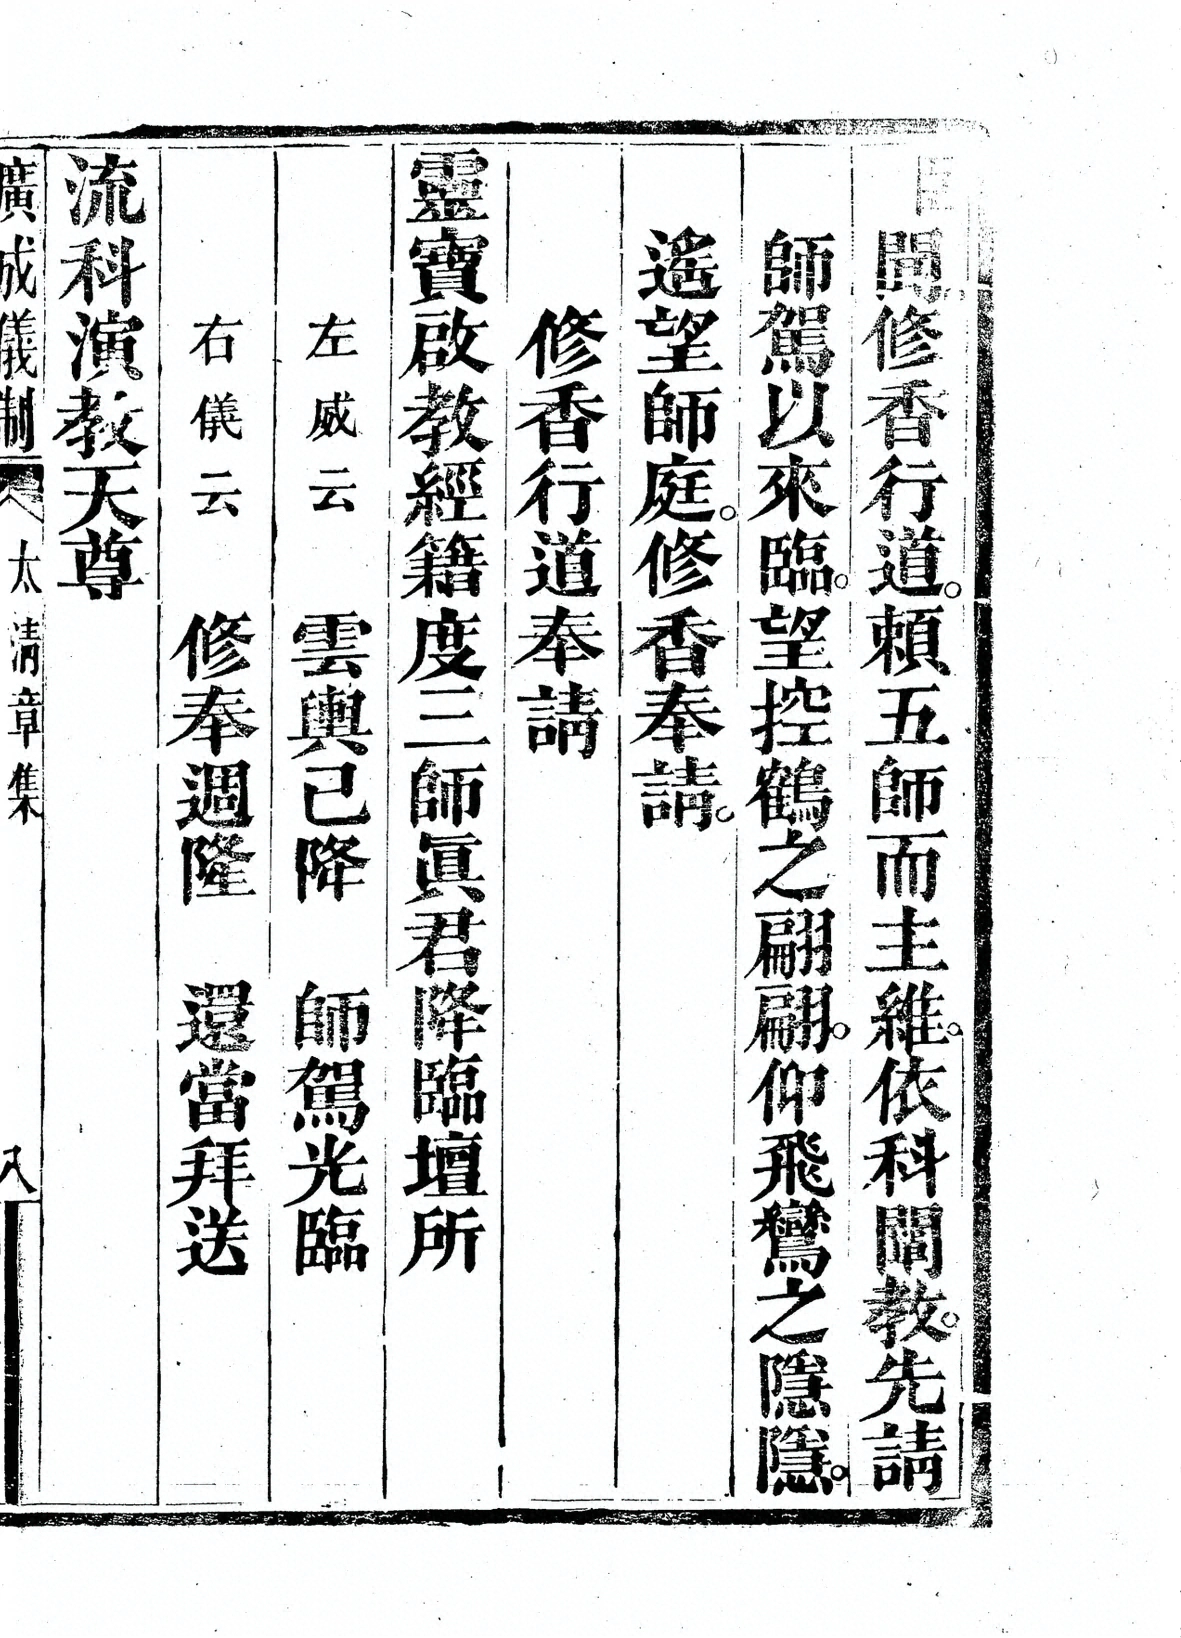 間修香行道。頼五師而主維。依科闡教。先請
師駕以來臨。望控鶴之翩翩。仰飛鸞之隱隱。
遙望師庭。修香奉請。
修香行道奉請
靈寶啟教經籍度三師眞君降臨壇所
左威云　雲輿已降　師駕光臨
右儀云　修奉週隆　還當拜送
流科演教天尊
廣成儀制　太清章集　八